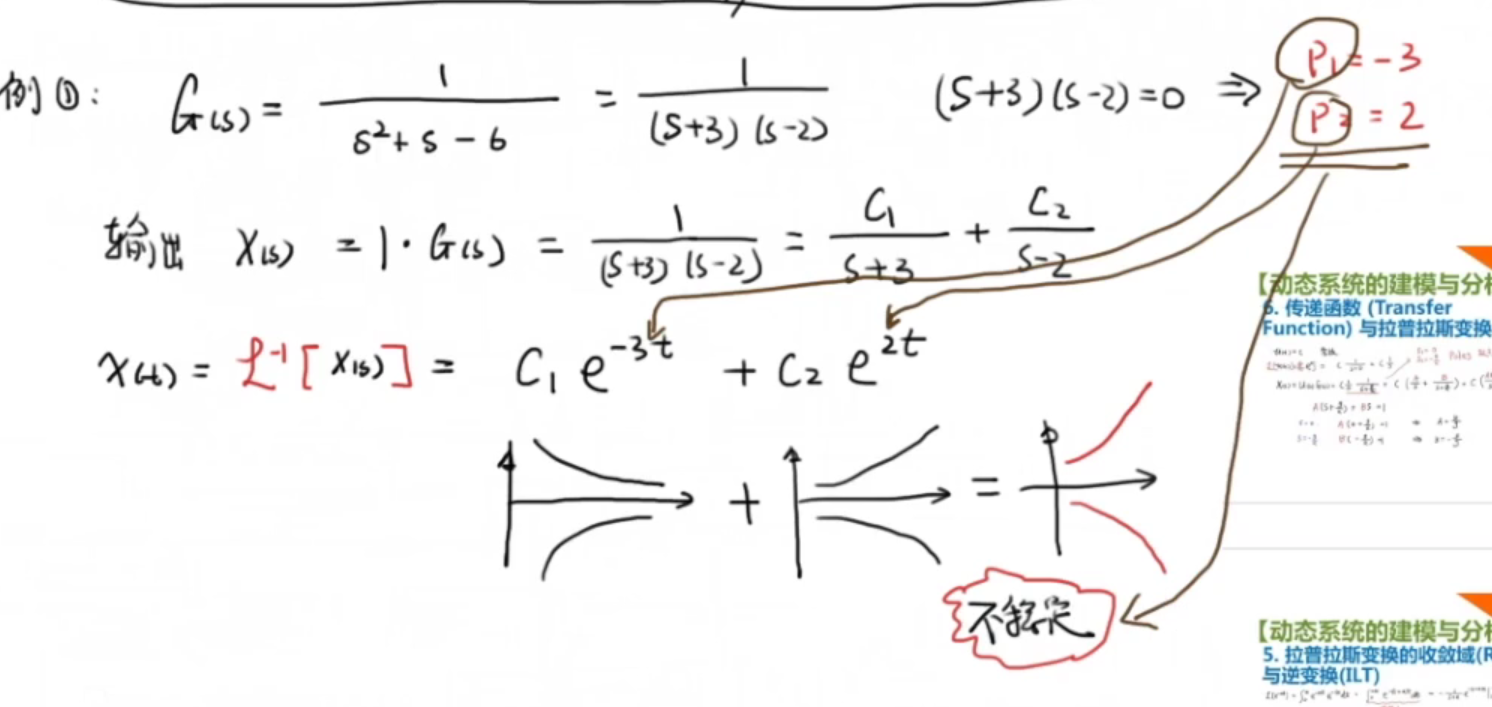 例①: G(s) = 1/(s²+s-6) = 1/((s+3)(s-2)) (s+3)(s-2)=0 ⇒ P₁ = -3
P₂ = 2
输出 X(s) = 1·G(s) = 1/((s+3)(s-2)) = C₁/(s+3) + C₂/(s-2)
x(t) = ℒ⁻¹[X(s)] = C₁e^{-3t} + C₂e^{2t}
+ =
不稳定
【动态系统的建模与分析
6. 传递函数 (Transfer
Function) 与拉普拉斯变换
【动态系统的建模与分析
5. 拉普拉斯变换的收敛域(R
与逆变换(ILT)